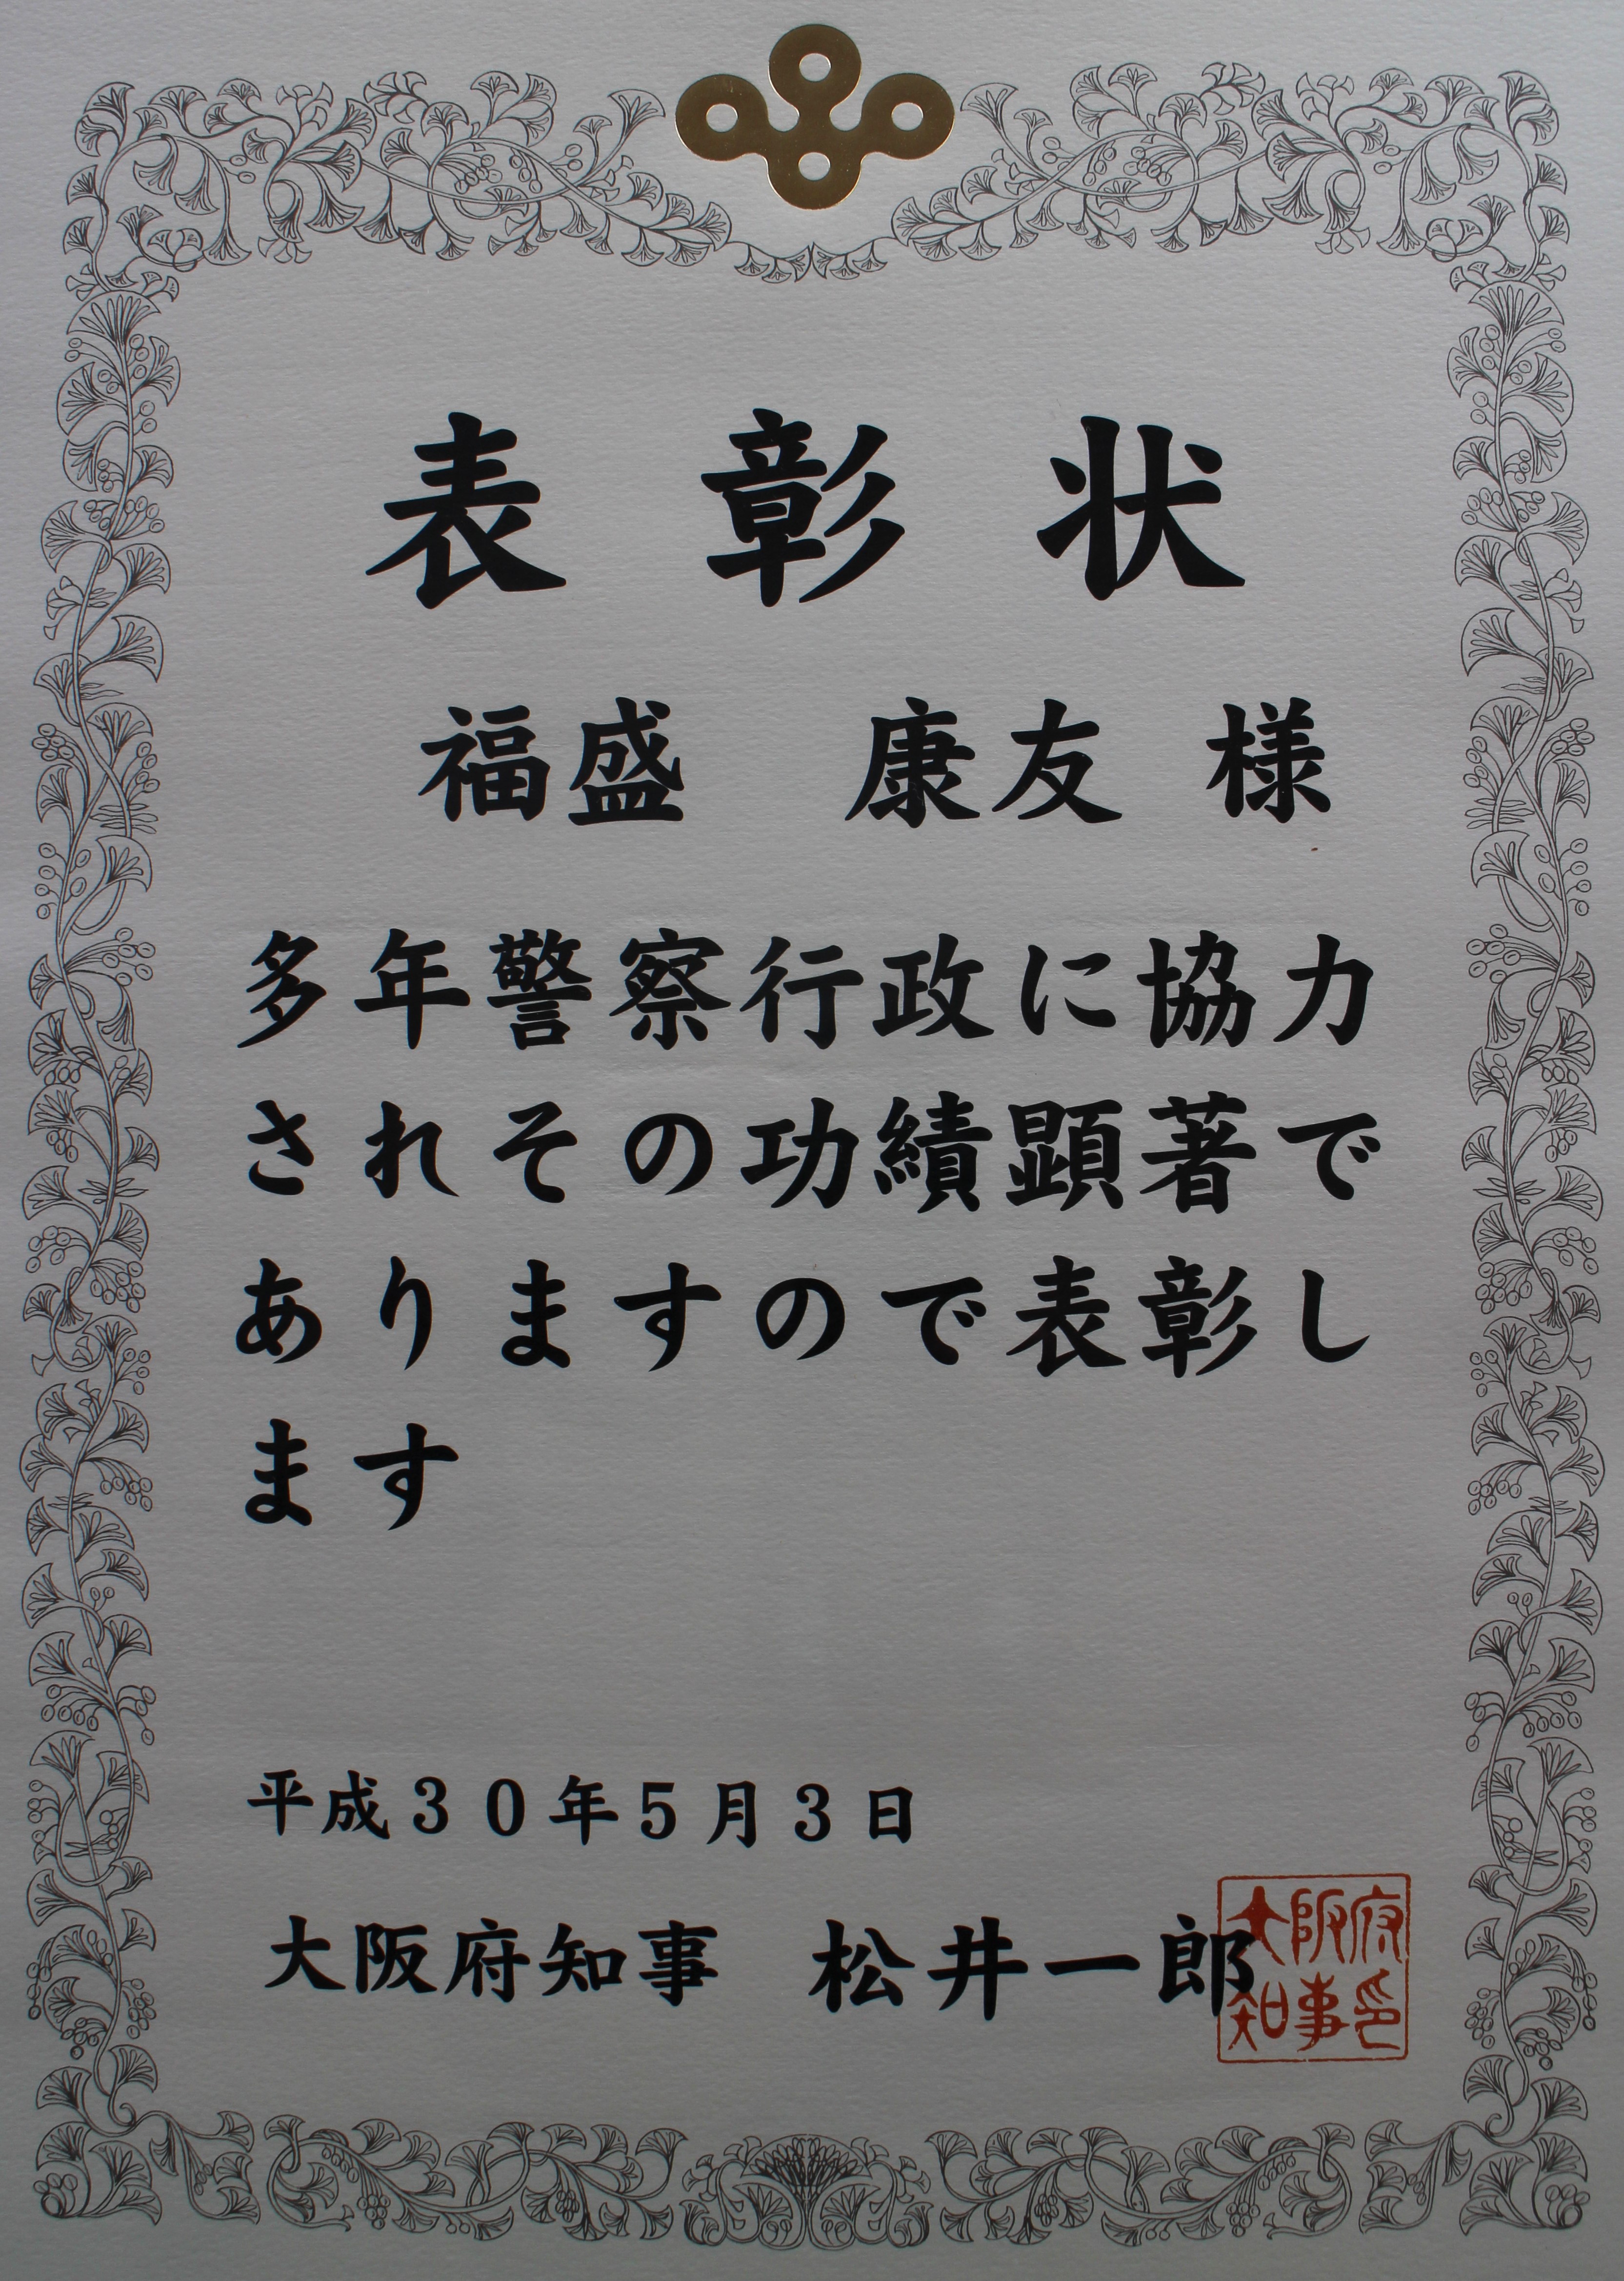 表彰状
福盛　康友 様
多年警察行政に協力
されその功績顕著で
ありますので表彰し
ます
平成３０年５月３日
大阪府知事　松井一郎
大阪府
知事印